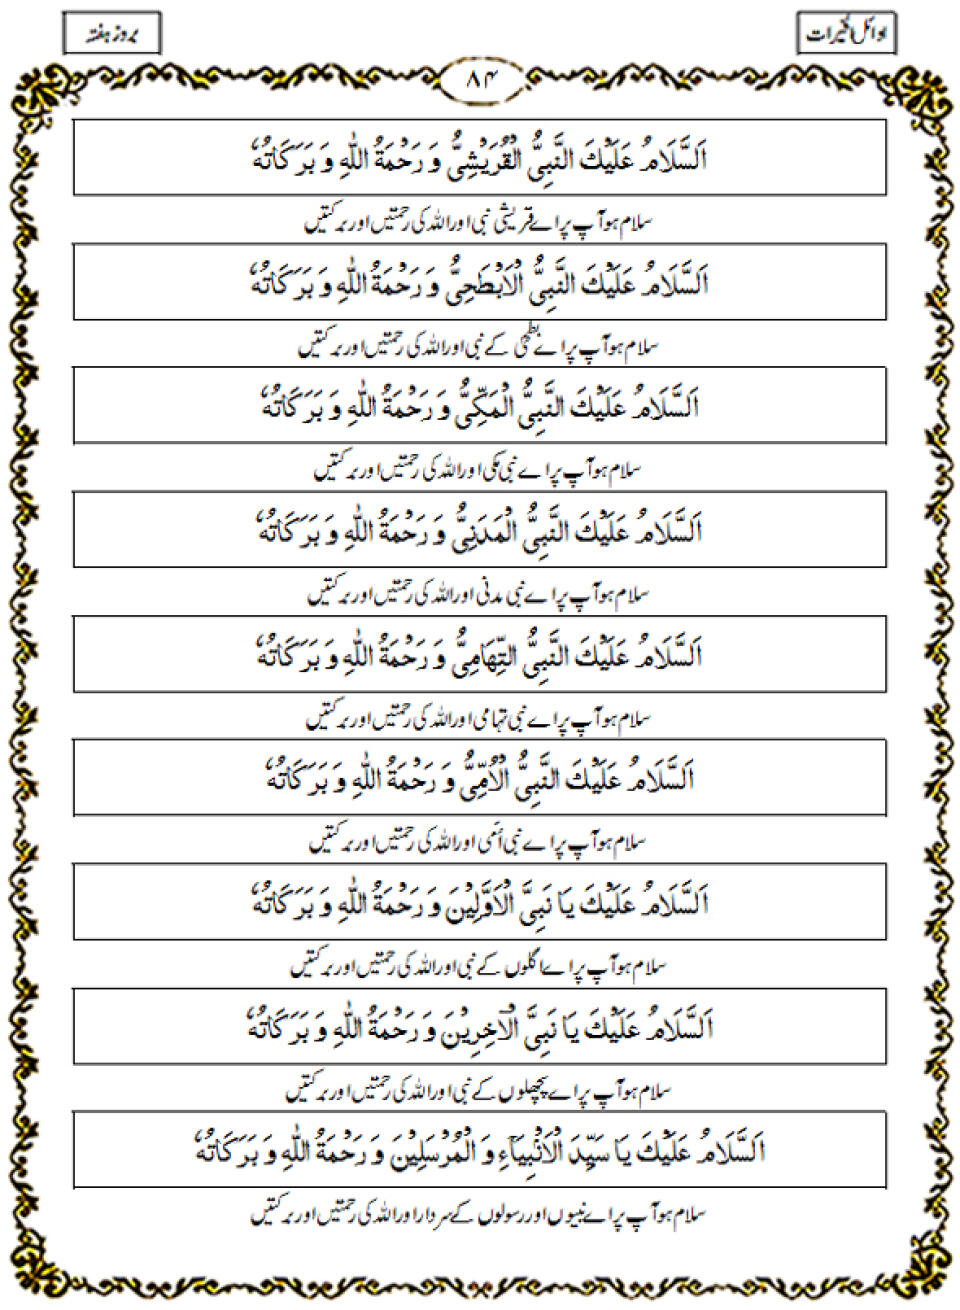 اوائل الخیرات
بروز ہفتہ
۸۴
اَلسَّلَامُ عَلَیْكَ النَّبِیُّ الْقُرَیْشِیُّ وَ رَحْمَةُ اللّٰهِ وَ بَرَكَاتُهٗ
سلام ہو آپ پر اے قریشی نبی اور اللہ کی رحمتیں اور برکتیں
اَلسَّلَامُ عَلَیْكَ النَّبِیُّ الْاَبْطَحِیُّ وَ رَحْمَةُ اللّٰهِ وَ بَرَكَاتُهٗ
سلام ہو آپ پر اے بطحیٰ کے نبی اور اللہ کی رحمتیں اور برکتیں
اَلسَّلَامُ عَلَیْكَ النَّبِیُّ الْمَكِّیُّ وَ رَحْمَةُ اللّٰهِ وَ بَرَكَاتُهٗ
سلام ہو آپ پر اے نبی مکی اور اللہ کی رحمتیں اور برکتیں
اَلسَّلَامُ عَلَیْكَ النَّبِیُّ الْمَدَنِیُّ وَ رَحْمَةُ اللّٰهِ وَ بَرَكَاتُهٗ
سلام ہو آپ پر اے نبی مدنی اور اللہ کی رحمتیں اور برکتیں
اَلسَّلَامُ عَلَیْكَ النَّبِیُّ التِّهَامِیُّ وَ رَحْمَةُ اللّٰهِ وَ بَرَكَاتُهٗ
سلام ہو آپ پر اے نبی تہامی اور اللہ کی رحمتیں اور برکتیں
اَلسَّلَامُ عَلَیْكَ النَّبِیُّ الْاُمِّیُّ وَ رَحْمَةُ اللّٰهِ وَ بَرَكَاتُهٗ
سلام ہو آپ پر اے نبی اُمی اور اللہ کی رحمتیں اور برکتیں
اَلسَّلَامُ عَلَیْكَ یَا نَبِیَّ الْاَوَّلِیْنَ وَ رَحْمَةُ اللّٰهِ وَ بَرَكَاتُهٗ
سلام ہو آپ پر اے اگلوں کے نبی اور اللہ کی رحمتیں اور برکتیں
اَلسَّلَامُ عَلَیْكَ یَا نَبِیَّ الْآخِرِیْنَ وَ رَحْمَةُ اللّٰهِ وَ بَرَكَاتُهٗ
سلام ہو آپ پر اے پچھلوں کے نبی اور اللہ کی رحمتیں اور برکتیں
اَلسَّلَامُ عَلَیْكَ یَا سَیِّدَ الْاَنْبِیَآءِ وَ الْمُرْسَلِیْنَ وَ رَحْمَةُ اللّٰهِ وَ بَرَكَاتُهٗ
سلام ہو آپ پر اے نبیوں اور رسولوں کے سردار اور اللہ کی رحمتیں اور برکتیں